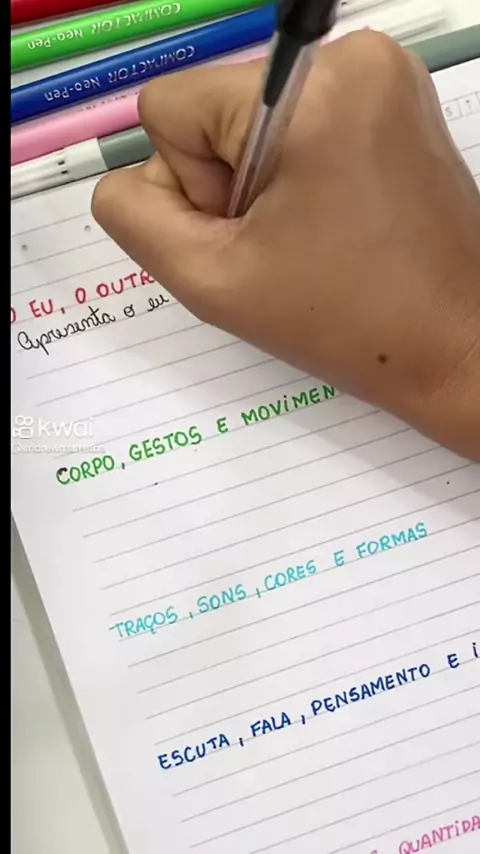 COMPACTOR Neo-Pen
COMPACTOR Neo-Pen
O EU, O OUTR
Apresenta o eu
kwai
CORPO, GESTOS E MOVIMEN
TRAÇOS, SONS, CORES E FORMAS
ESCUTA, FALA, PENSAMENTO E I
QUANTIDA